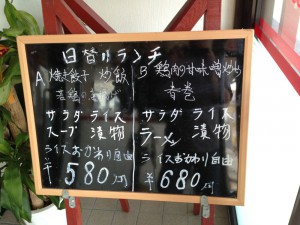 日替りランチ
A 焼き餃子 炒飯
若鶏の
サラダ ライス
スープ 漬物
ライスおかわり自由
580円
B 鶏肉の甘味噌炒め
春巻
サラダ ライス
ラーメン 漬物
ライスおかわり自由
¥680円